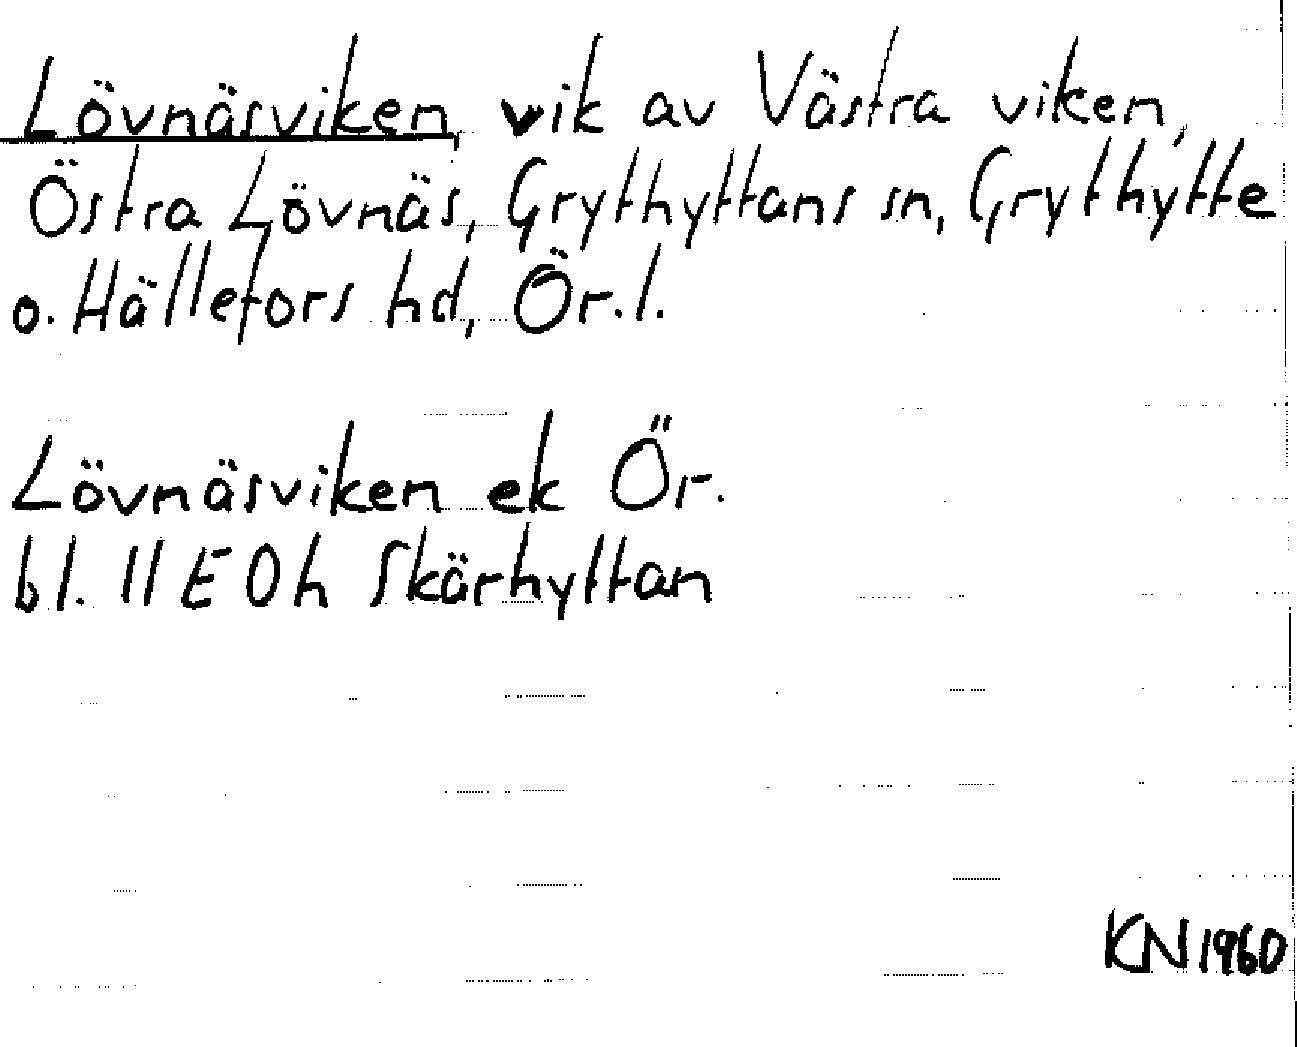 Lövnäsviken, vik av Västra viken,
Östra Lövnäs, Grythyttans sn, Grythytte
o. Hällefors hd, Ör. l.
Lövnäsviken ek Ör.
bl. 11 E 0 h Skärhyttan
KN 1960